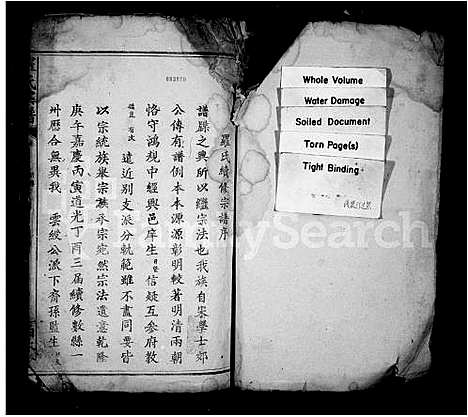 羅氏續修宗譜序
譜牒之興所以繼宗法也我族自宋學士郊
公傳有譜側本本源源彰明較著明清兩朝
恪守鴻規中經與邑庠生 信疑互參府教
遠近別支派分執範雖不盡同要皆
以宗統族 族 宗宛然宗法遺意乾隆
庚午嘉慶丙寅道光丁酉三屆續修數縣一
卅歷合無異我 雲縱公派下裔孫監生
Whole Volume
Water Damage
Soiled Document
Torn Page(s)
Tight Binding
FamilySearch